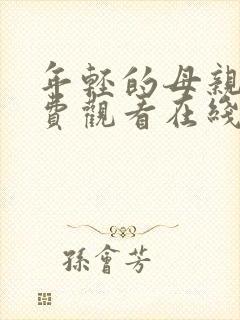 年轻的母親
費觀看在綫
孫會芳